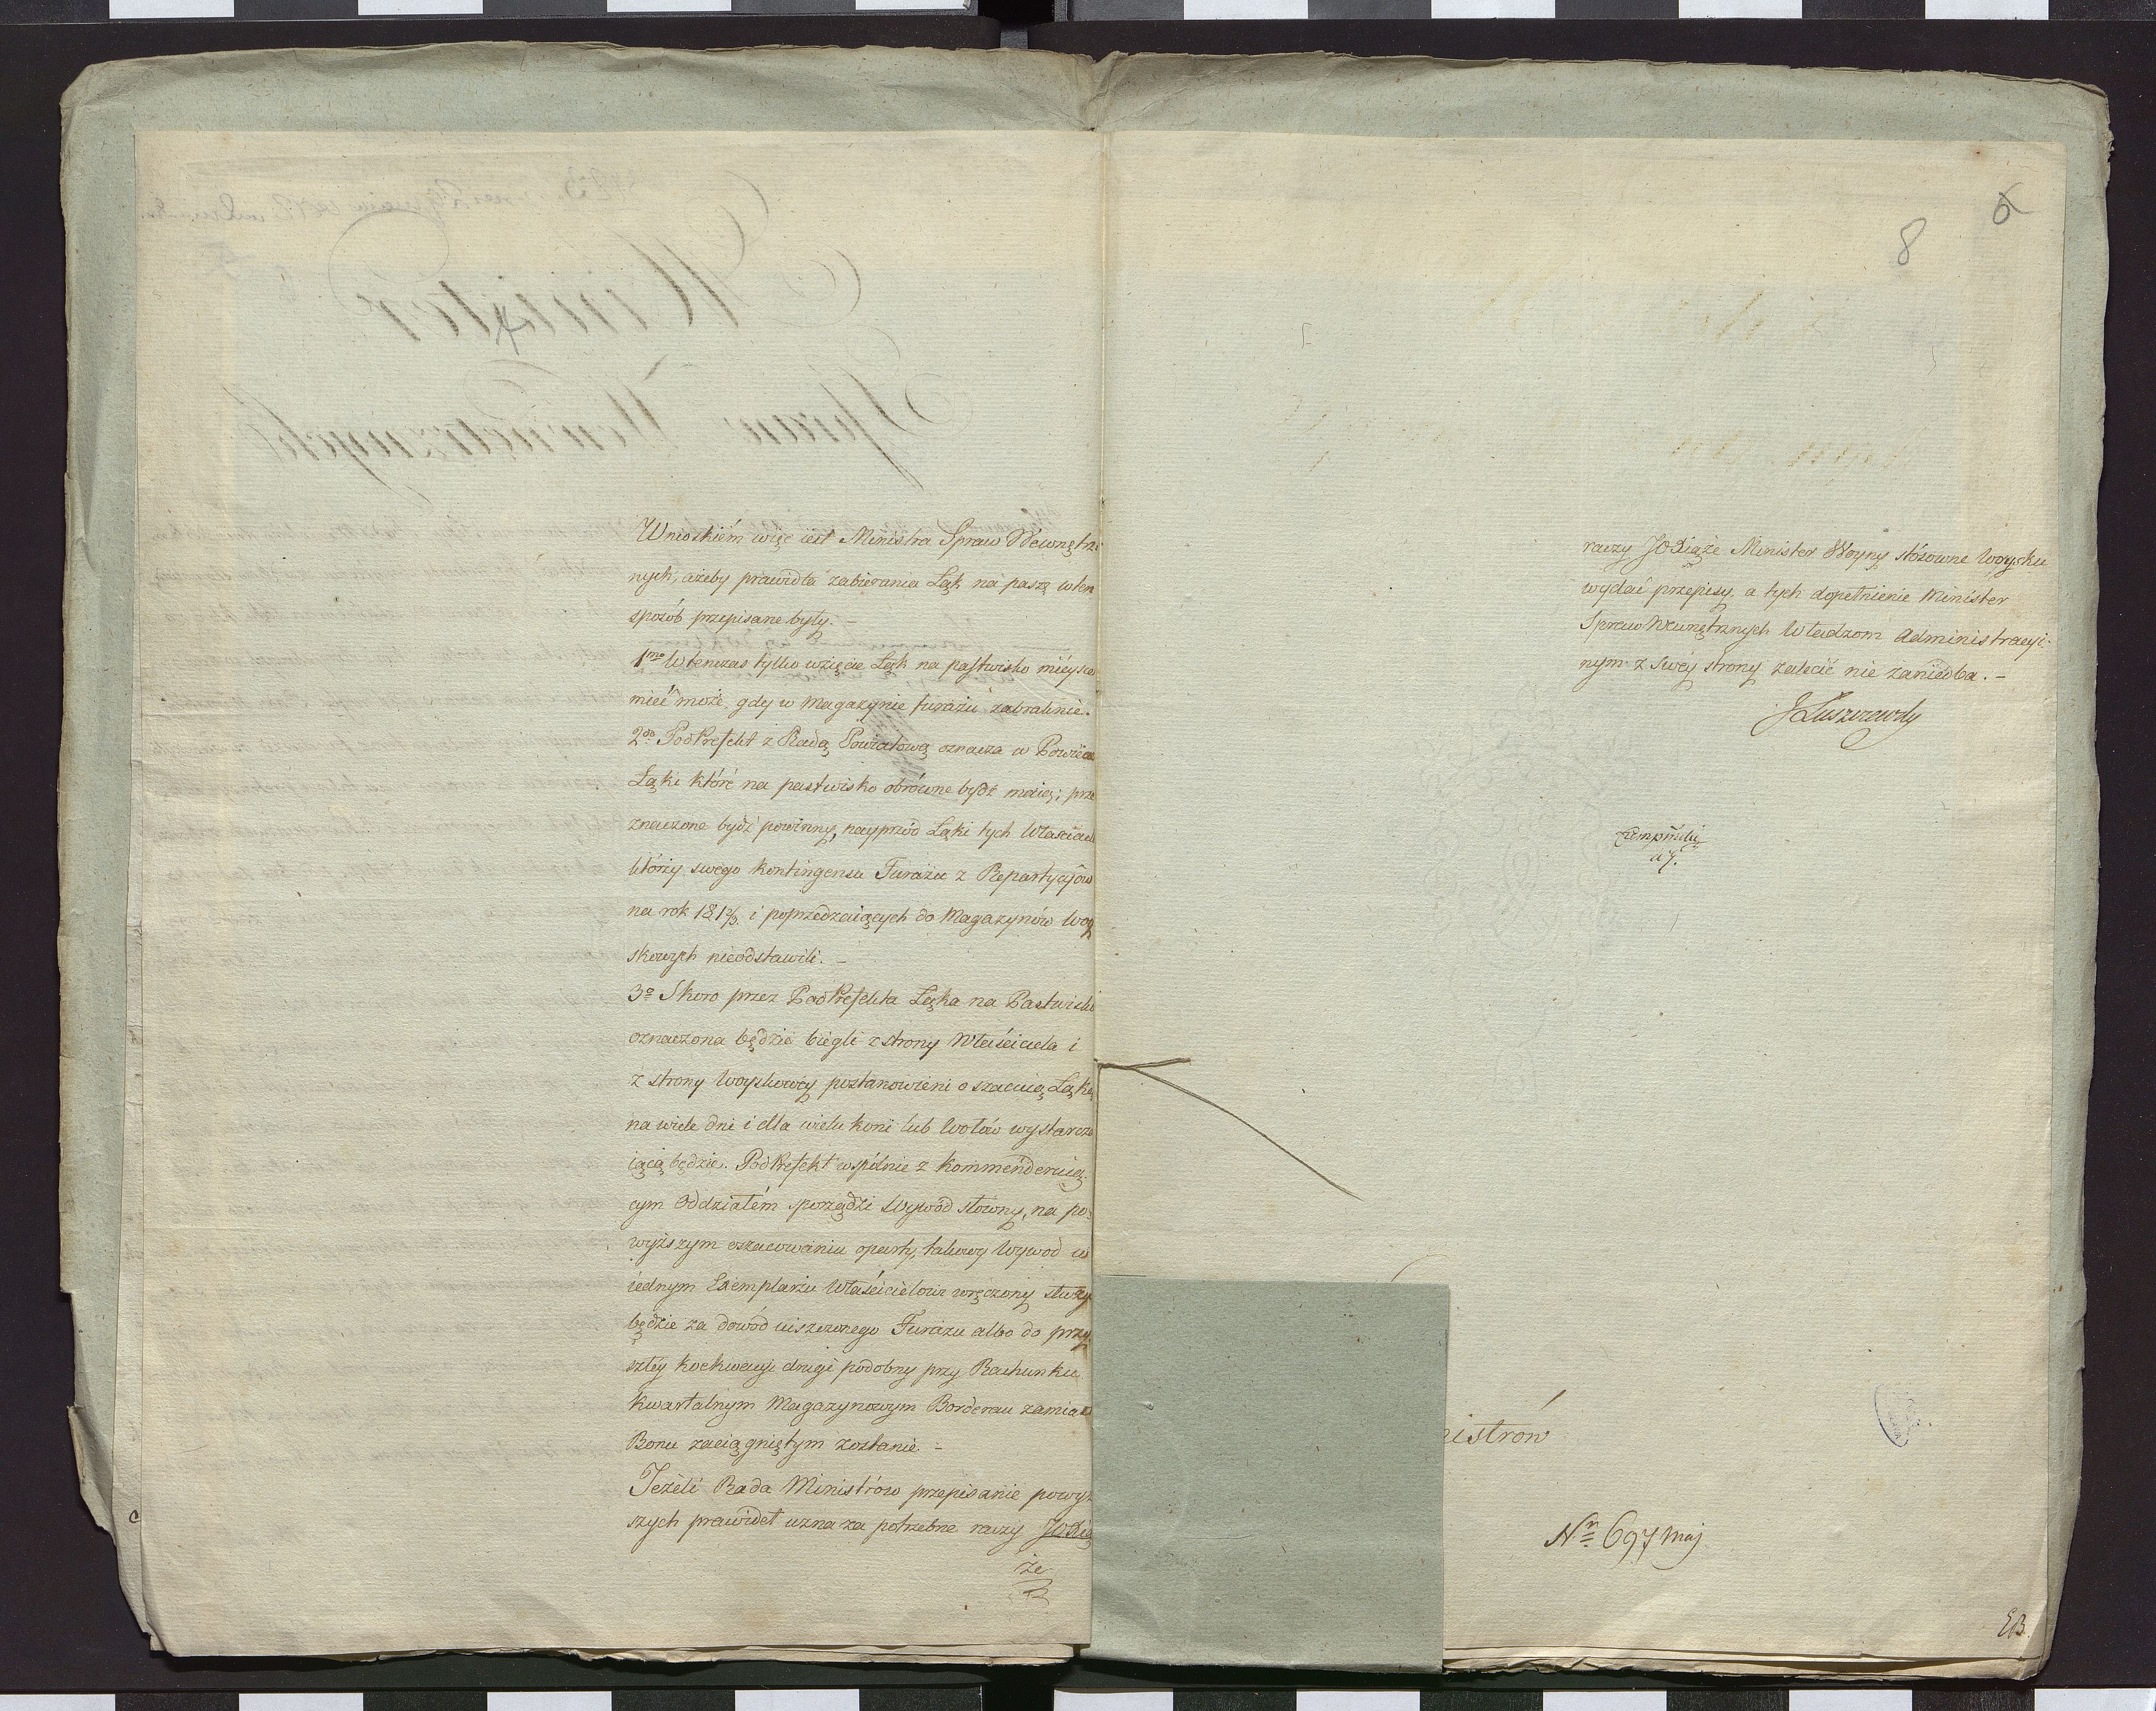 Wnioskiém więc iest Ministra Spraw Wewnętrz
nych, ażeby prawidła zabierania Łąk na paszę w ten
sposób przepisane były. —
1mo Wtenczas tylko wzięcie Łąk na pastwisko miéysce
miéć może, gdy w Magazynie furażu zabraknie.
2do PodPrefekt z Radą Powiatową oznacza w Powiecie
Łąki któré na pastwisko obrócone bydź maią; prze
znaczone bydź powinny, nayprzód Łąki tych Właścicieli
którzy swego kontingensu Furażu z Repartycyów
na rok 1812/3 i poprzedzaiących do Magazynów Woy
skowych nieodstawili. —
3o Skoro przez PodPrefekta Łąka na Pastwisko
oznaczona będzie biegli z strony Właściciela i
z strony Woyskowéy postanowieni oszacuią Łąkę
na wiele dni i dla wielu koni lub Wołów wystarcza
iącą będzie. PodPrefekt wspólnie z kommenderuią
cym Oddziałém sporządzi Wywód słowny, na po=
wyższym oszacowaniu oparty, takowy Wywód w
iednym Exemplarzu Właścicielowi wręczony służy
będzie za dowód uiszczonego Furażu albo do przy
szłéy koekwacyi drugi podobny przy Rachunku
kwartalnym Magazynowym Borderau zamiast
Bonu zaciągniętym zostanie. —
Jeżeli Rada Ministrów przepisanie powyż
szych prawideł uzna za potrzebne raczy JOXią
że
8
6
raczy JOXiąże Minister Woyny stósowne Woysku
wydać przepisy, a tych dopełnienie Minister
Spraw Wewnętrznych Władzom Administracyi
nym z swéy strony zalecić nie zaniedba. —
JŁuszczewsky
nistrów
Nr 697 Maj.
EB.